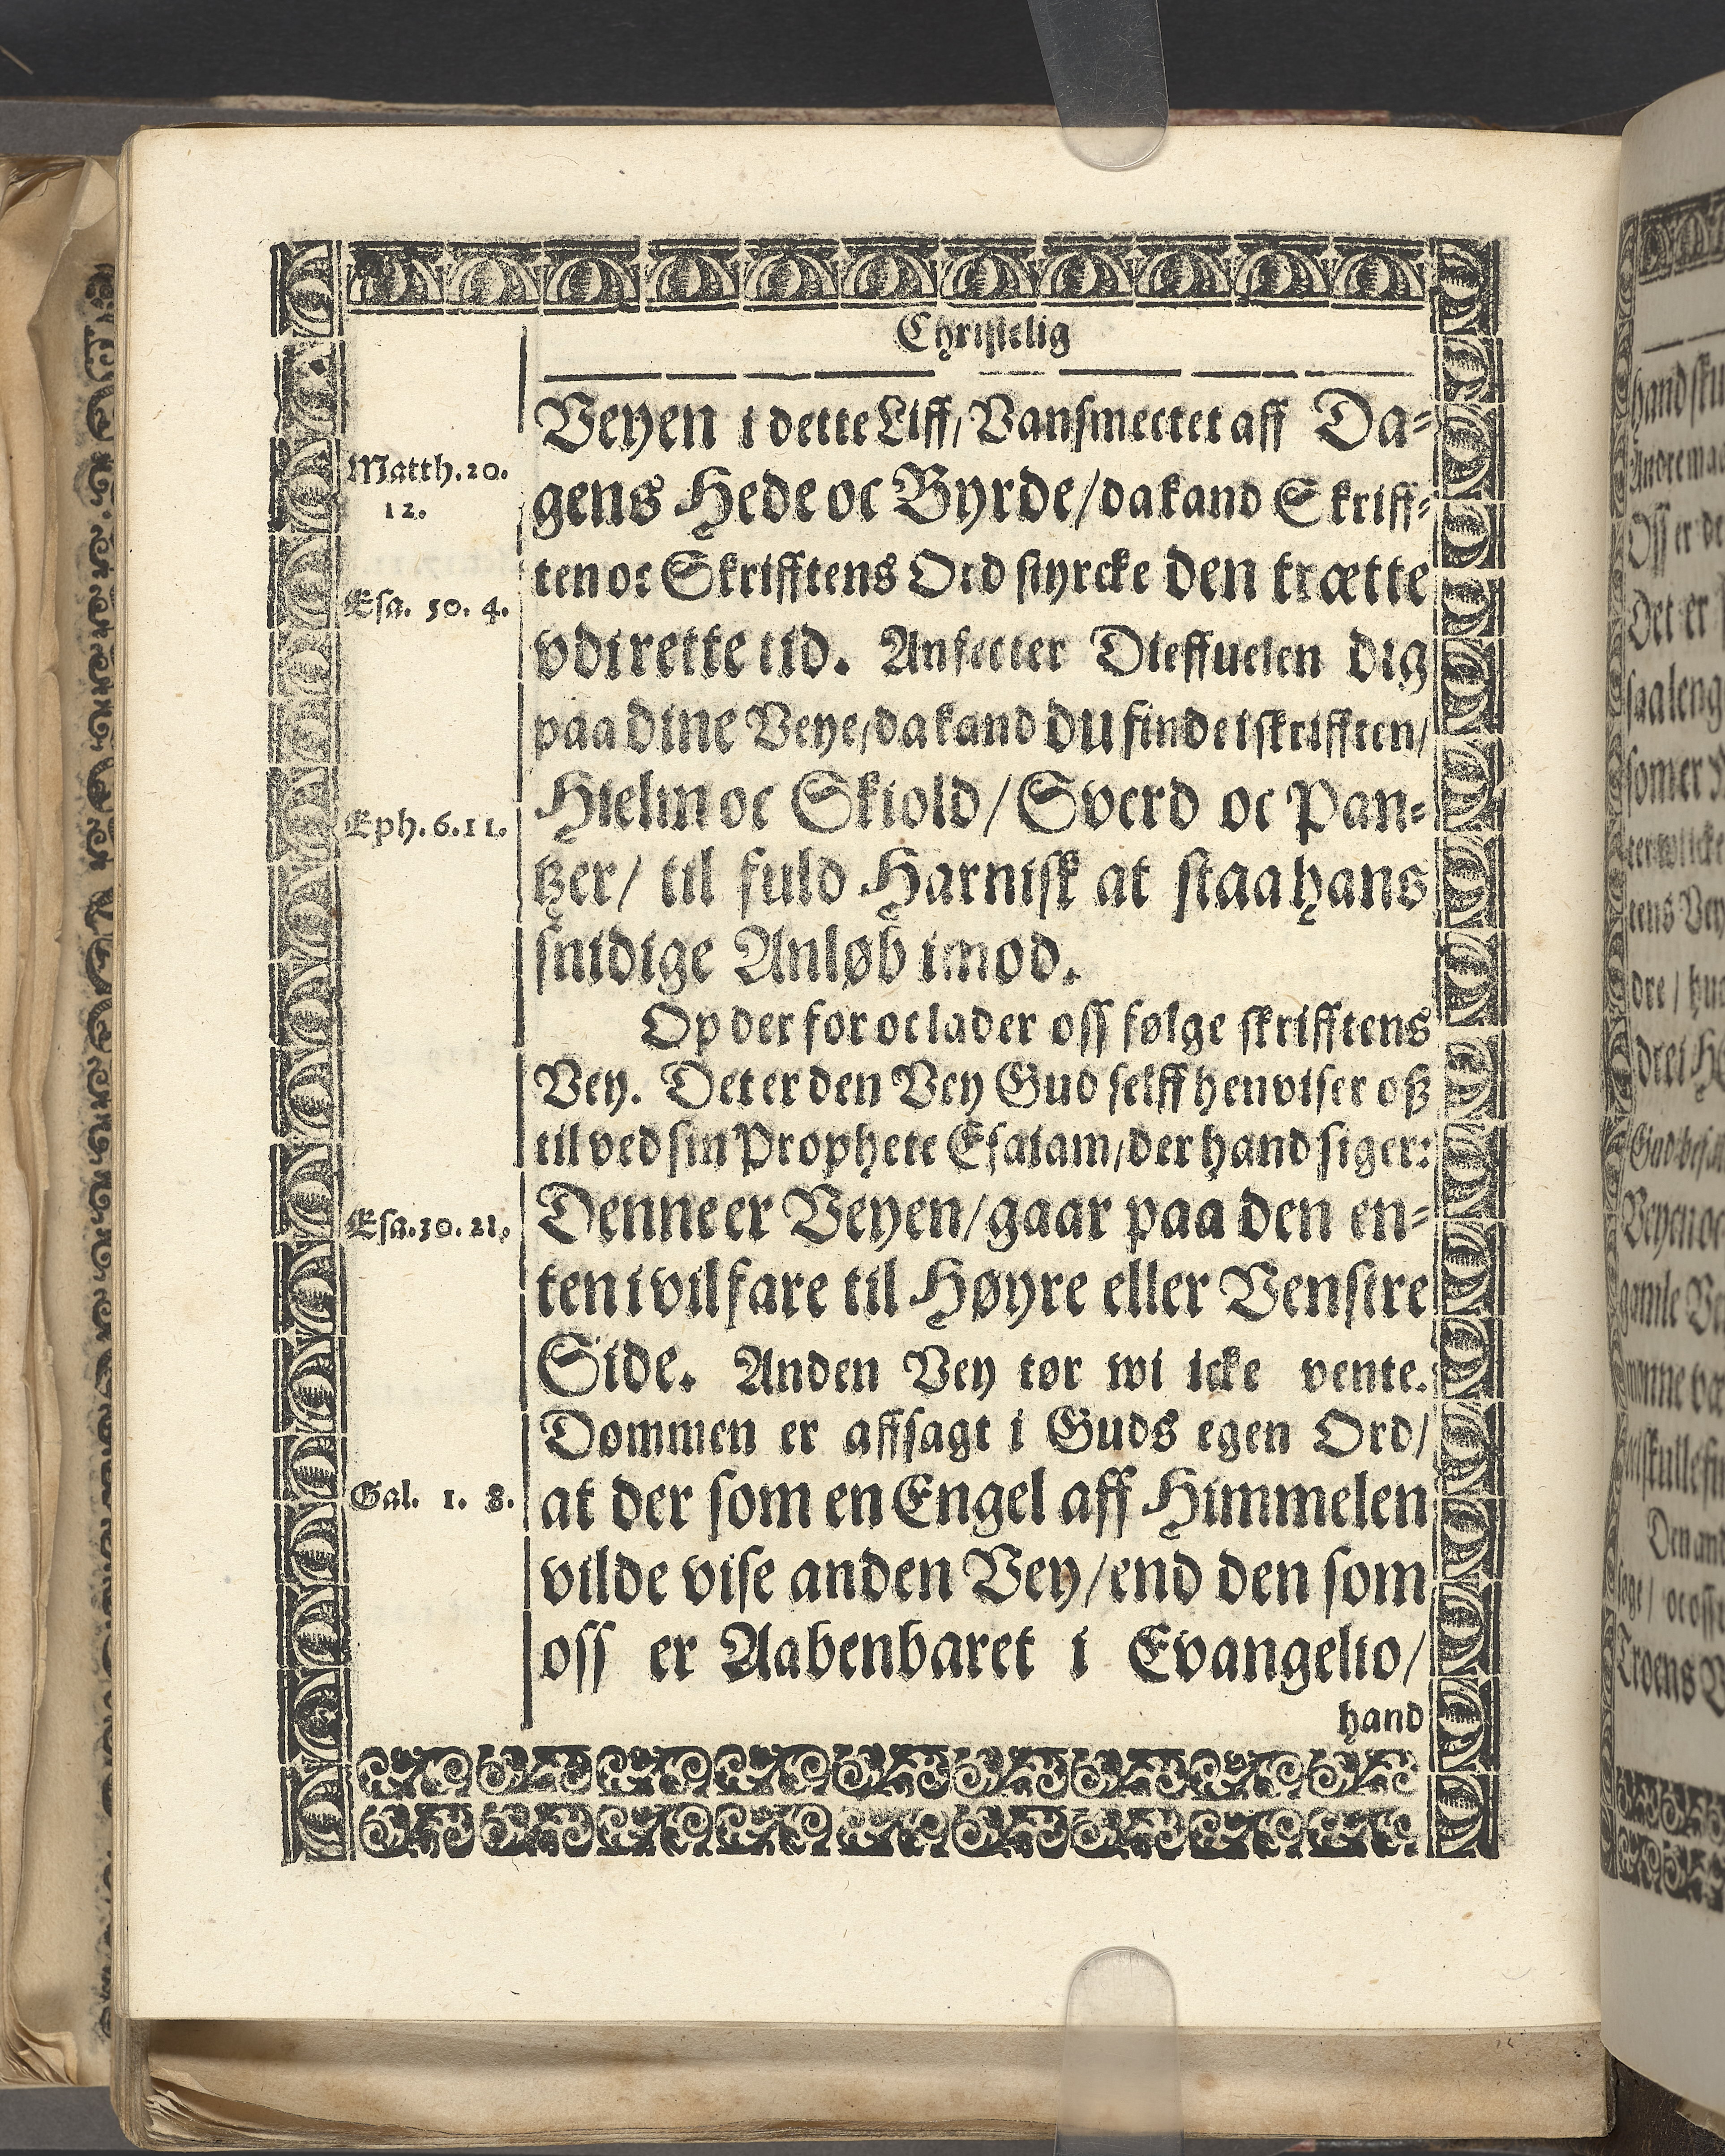 Christelig
Veyen i dette Liff/ Vansmectet aff Da-
Matth. 20.
12.
gens Hede oc Byrde/ da kand Skriff-
ten oc Skrifftens Ord styrcke den trætte
Esa. 50. 4.
vdi rette tid. Anfecter Dieffuelen dig
paa dine Veye/ da kand du finde i skrifften/
Hielm oc Skiold/ Sverd oc Pan-
Eph. 6. 11.
tzer/ til fuld Harnisk at staa hans
snidige Anløb imod.
Op der for oc lader oss følge skrifftens
Vey. Det er den Vey Gud selff henviser oß
til ved sin Prophete Esaiam/ der hand siger:
Denne er Veyen/ gaar paa den en-
Esa. 30. 21.
ten i vil fare til Høyre eller Venstre
Side. Anden Vey tør wi icke vente.
Dommen er affsagt i Guds egen Ord/
at der som en Engel aff Himmelen
Gal. 1. 8.
vilde vise anden Vey/ end den som
oss er Aabenbaret i Evangelio/
hand